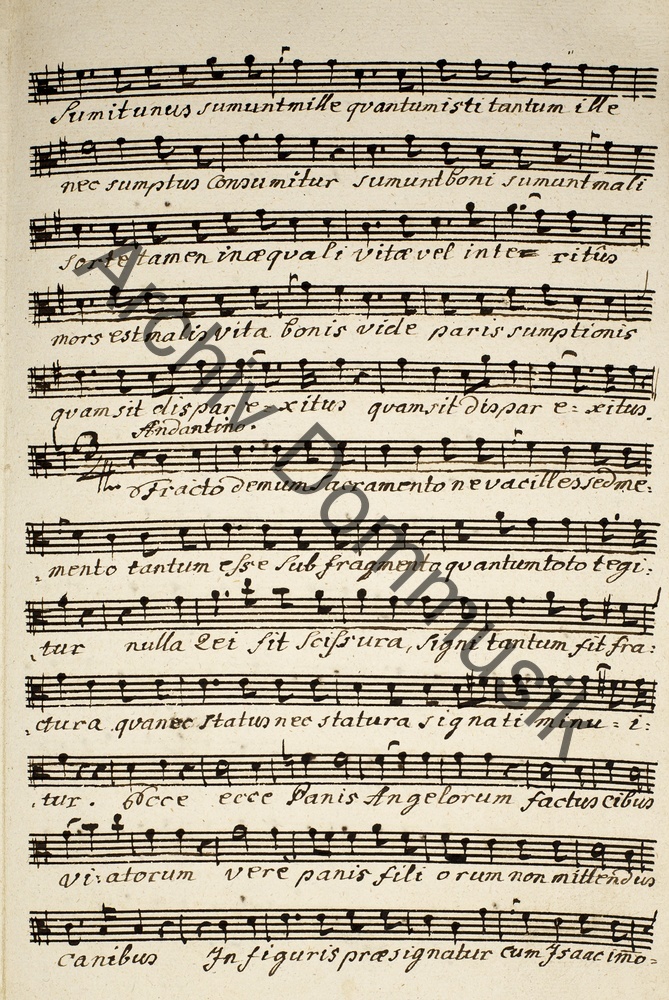 Sumit unus sumunt mille quantum isti tantum ille
nec sumptus Consumitur sumunt boni sumunt mali
sorte tamen inæquali vitæ vel inte= ritûs
mors est malis vita bonis vide paris sumptionis
quam sit dispar e= xitus quam sit dispar e= xitus.
Andantino.
Fracto demum Sacramento ne vacilles sed me=
mento tantum esse sub fragmento quantum toto tegi=
tur nulla Rei fit Scissura, signi tantum fit fra=
ctura qua nec status nec statura signati minu= i=
tur. Ecce ecce Panis Angelorum factus cibus
vi=atorum verè panis fili orum non mittendus
canibus In figuris præsignatur cum Isaac imo=
Archiv Dommusik